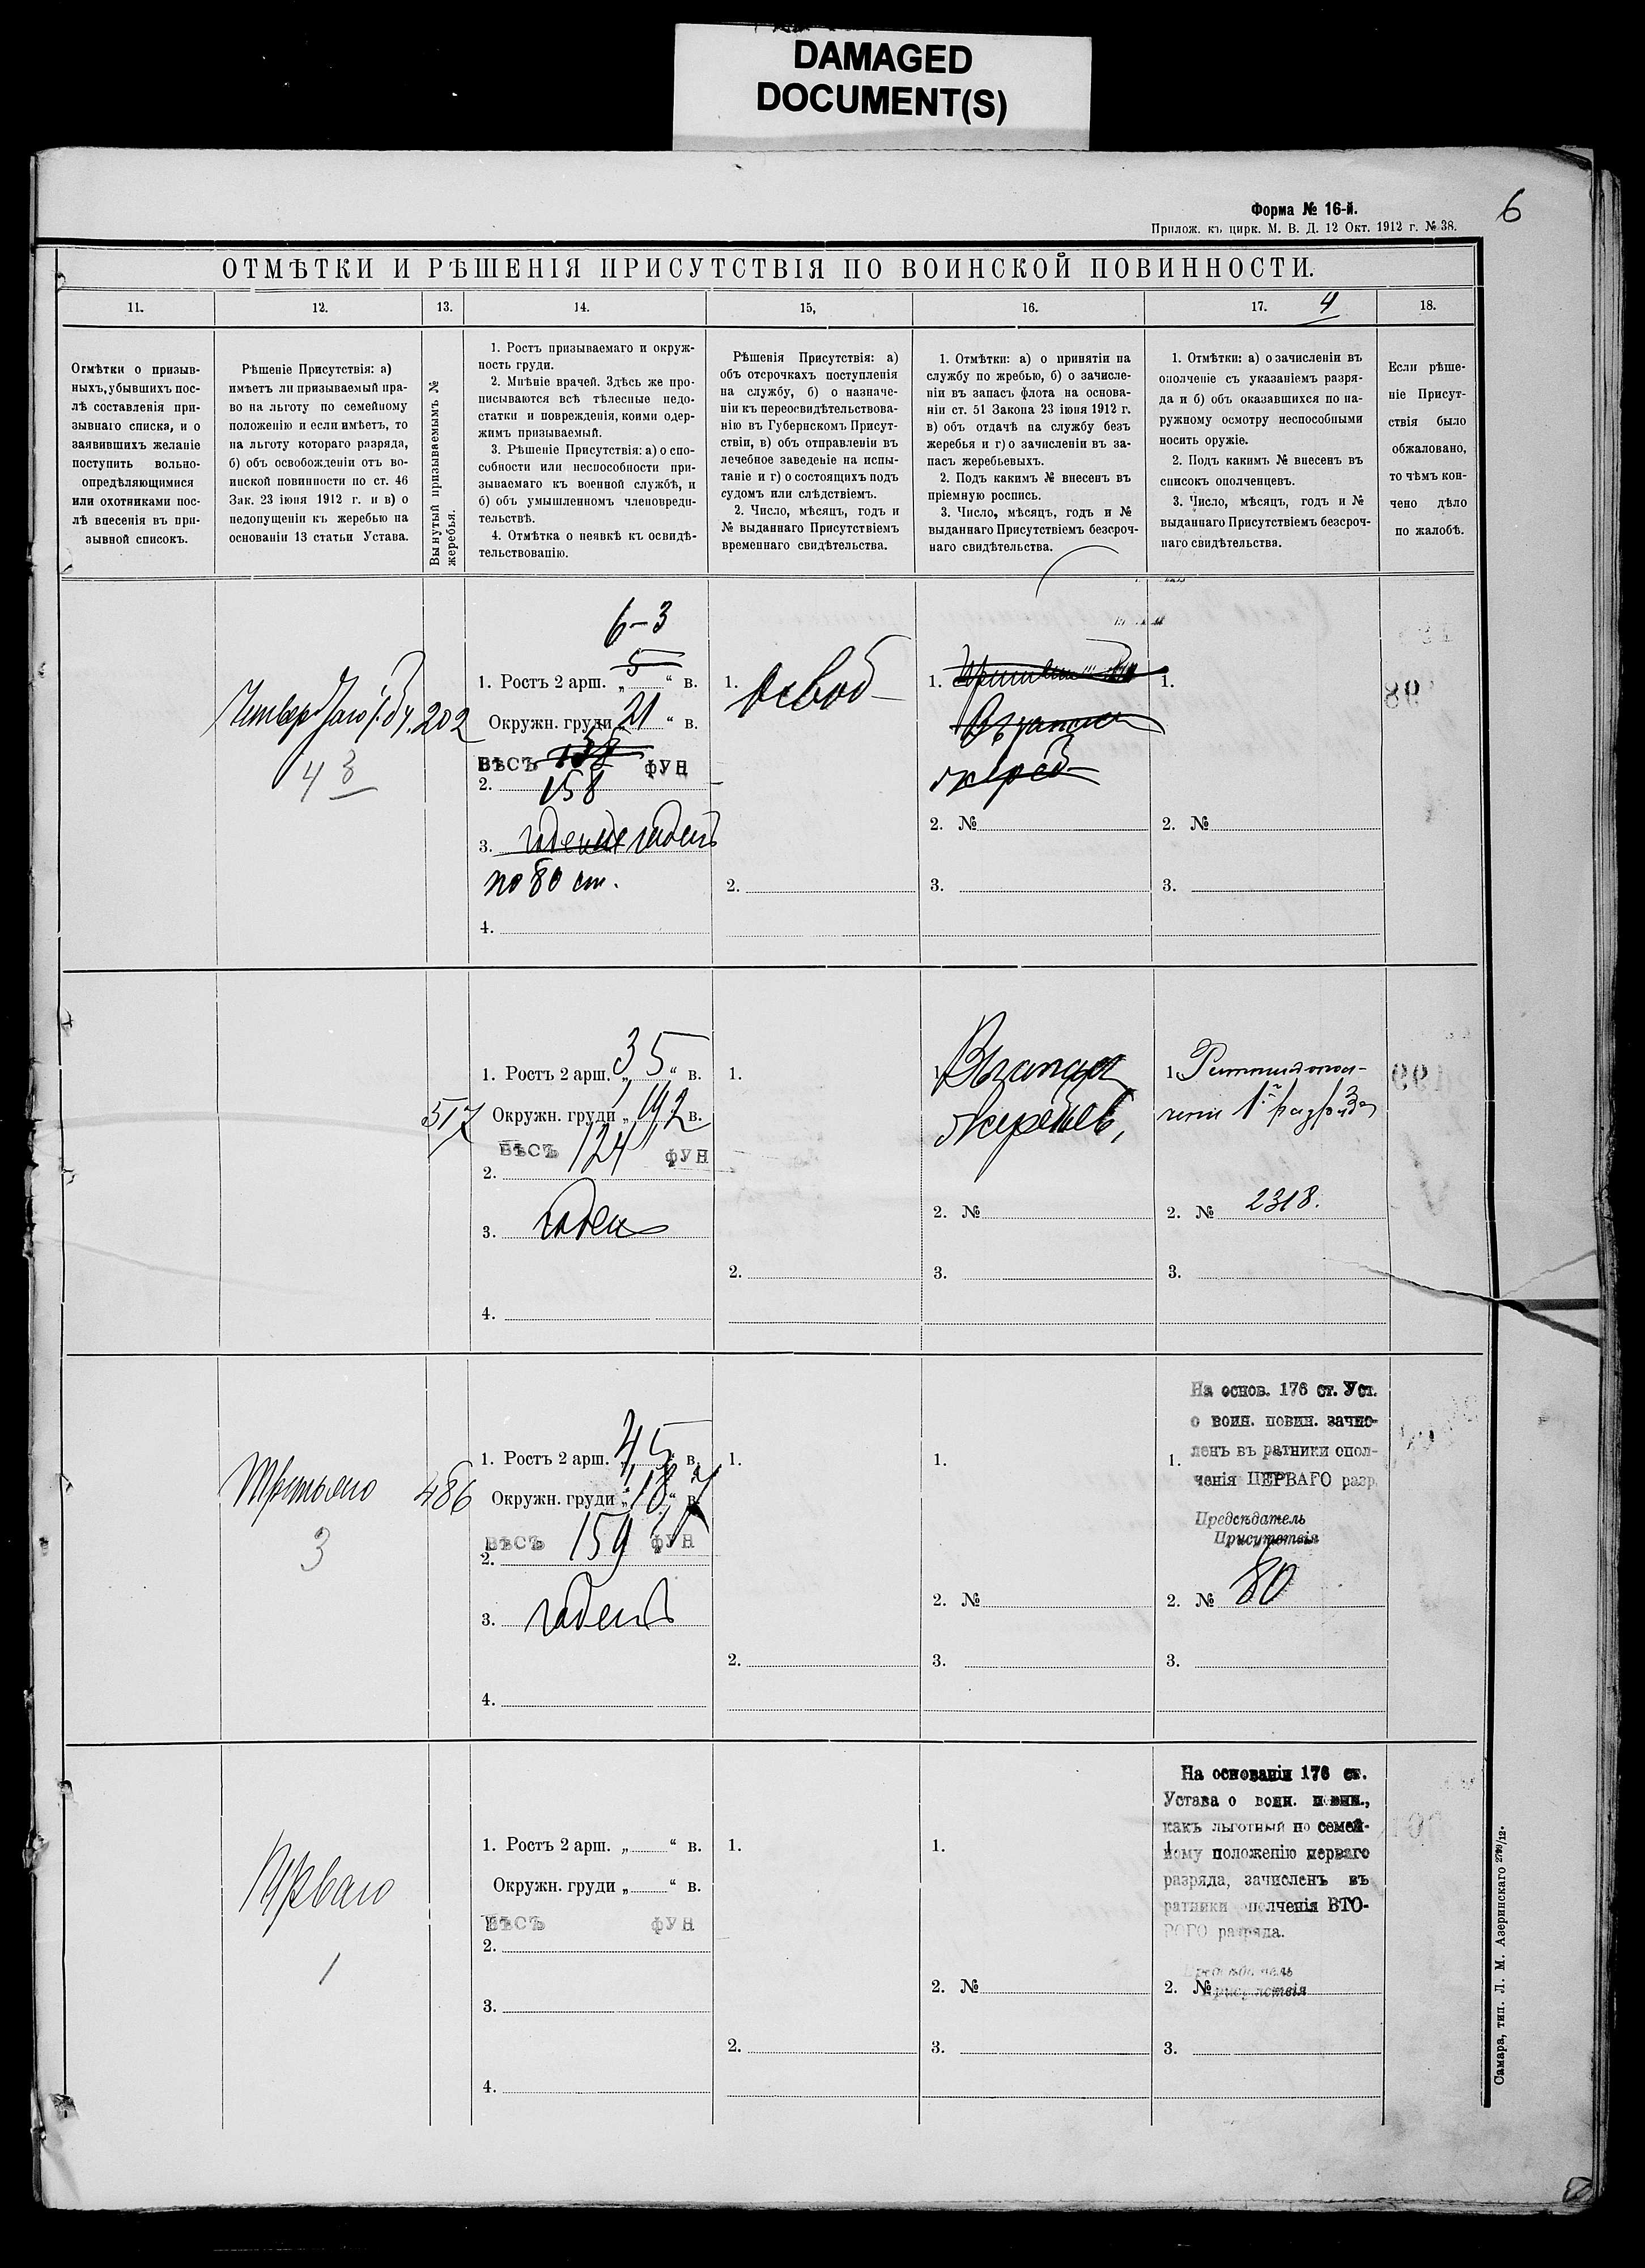 DAMAGED
DOCUMENT(S)
6
Форма № 16-й.
Прилож. къ цирк. М. В. Д. 12 Окт. 1912 г. № 38.
ОТМѢТКИ И РѢШЕНІЯ ПРИСУТСТВІЯ ПО ВОИНСКОЙ ПОВИННОСТИ.
11.
12.
13.
14.
15,
16.
17.
4
18.
Отмѣтки о призыв-
ныхъ, убывшихъ пос-
лѣ составленія при-
зывнаго списка, и о
заявившихъ желаніе
поступить вольно-
опредѣляющимися
или охотниками пос-
лѣ внесенія въ при-
зывной списокъ.
Рѣшеніе Присутствія: а)
имѣетъ ли призываемый пра-
во на льготу по семейному
положенію и если имѣетъ, то
на льготу котораго разряда,
б) объ освобожденіи отъ во-
инской повинности по ст. 46
Зак. 23 іюня 1912 г. и в) о
недопущеніи къ жеребью на
основаніи 13 статьи Устава.
Вынутый призываемымъ №
жеребья.
1. Ростъ призываемаго и окруж-
ность груди.
2. Мнѣніе врачей. Здѣсь же про-
писываются всѣ тѣлесные недо-
статки и поврежденія, коими одер-
жимъ призываемый.
3. Рѣшеніе Присутствія: а) о спо-
собности или неспособности при-
зываемаго къ военной службѣ, и
б) объ умышленномъ членовреди-
тельствѣ.
4. Отмѣтка о неявкѣ къ освидѣ-
тельствованію.
Рѣшенія Присутствія: а)
объ отсрочкахъ поступленія
на службу, б) о назначе-
ніи къ переосвидѣтельствова-
нію въ Губернскомъ Присут-
ствіи, в) объ отправленіи въ
лечебное заведеніе на испы-
таніе и г) о состоящихъ подъ
судомъ или слѣдствіемъ.
2. Число, мѣсяцъ, годъ и
№ выданнаго Присутствіемъ
временнаго свидѣтельства.
1. Отмѣтки: а) о принятіи на
службу по жребью, б) о зачисле-
ніи въ запасъ флота на основа-
ніи ст. 51 Закона 23 іюня 1912 г.
в) объ отдачѣ на службу безъ
жеребья и г) о зачисленіи въ за-
пасъ жеребьевыхъ.
2. Подъ какимъ № внесенъ въ
пріемную роспись.
3. Число, мѣсяцъ, годъ и №
выданнаго Присутствіемъ безсроч-
наго свидѣтельства.
1. Отмѣтки: а) о зачисленіи въ
ополченіе съ указаніемъ разря-
да и б) объ оказавшихся по на-
ружному осмотру неспособными
носить оружіе.
2. Подъ какимъ № внесенъ въ
списокъ ополченцевъ.
3. Число, мѣсяцъ, годъ и №
выданнаго Присутствіемъ безсроч-
наго свидѣтельства.
Если рѣше-
ніе Присут-
ствія было
обжаловано,
то чѣмъ кон-
чено дѣло
по жалобѣ.
6-3
5
1. Ростъ 2 арш. „ “ в.
202
Окружн. груди „ 21 “ в.
4 3
ВѢСЪ 158 ФУН
2. 158
3. годенъ годенъ
по 80 ст.
4.
1. Освоб
2.
1.
Въ запасъ
жереб
2. №
3.
1.
2. №
3.
517
1. Ростъ 2 арш. „ 3 5 “ в.
Окружн. груди „ 19,2 в.
ВѢСЪ 124 ФУН
2.
3. годенъ
4.
1.
2.
1. Въ запасъ
жеребьев,
2. №
3.
1. Ратник опол-
чені 1й разряда
2. № 2318.
3.
Третьяго
3
486
1. Ростъ 2 арш. „ 4 5 “ в.
Окружн. груди „ “ в.
ВѢСЪ 159 ФУН
2.
3. годенъ
4.
1.
2.
1.
2. №
3.
На основ. 176 ст. Уст.
о воин. повин. зачис-
ленъ въ ратники опол-
1.
ченія ПЕРВАГО разр.
Предсѣдатель
Присутствія
2. № 80
3.
Перваго
1
1. Ростъ 2 арш. „ “ в.
Окружн. груди „ “ в.
ВѢСЪ ФУН
2.
3.
4.
1.
2.
1.
2. №
3.
На основаніи 176 ст.
Устава о воин. повин.,
какъ льготный по семей-
1.
ному положенію перваго
разряда, зачисленъ въ
ратники ополченія ВТО-
РОГО разряда.
Предсѣдатель
2. № Присутствія
3.
Самара, тип. Л. М. Азеринскаго 2799/12.